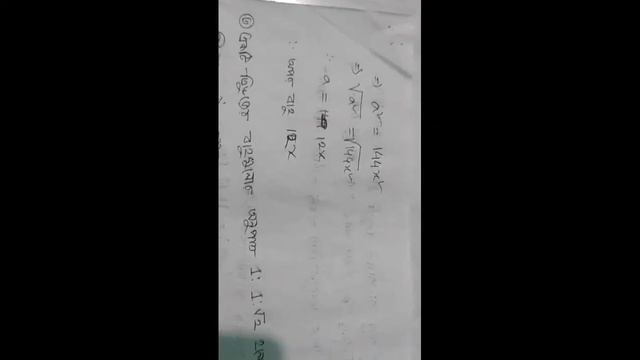 ⇒ a² = 144x²
⇒ √a² = √144x²
∴ a = 12x
∴ সমান বাহু 12x
⑥ একটি ত্রিভুজের বাহুগুলোর অনুপাত 1 : 1 : √2